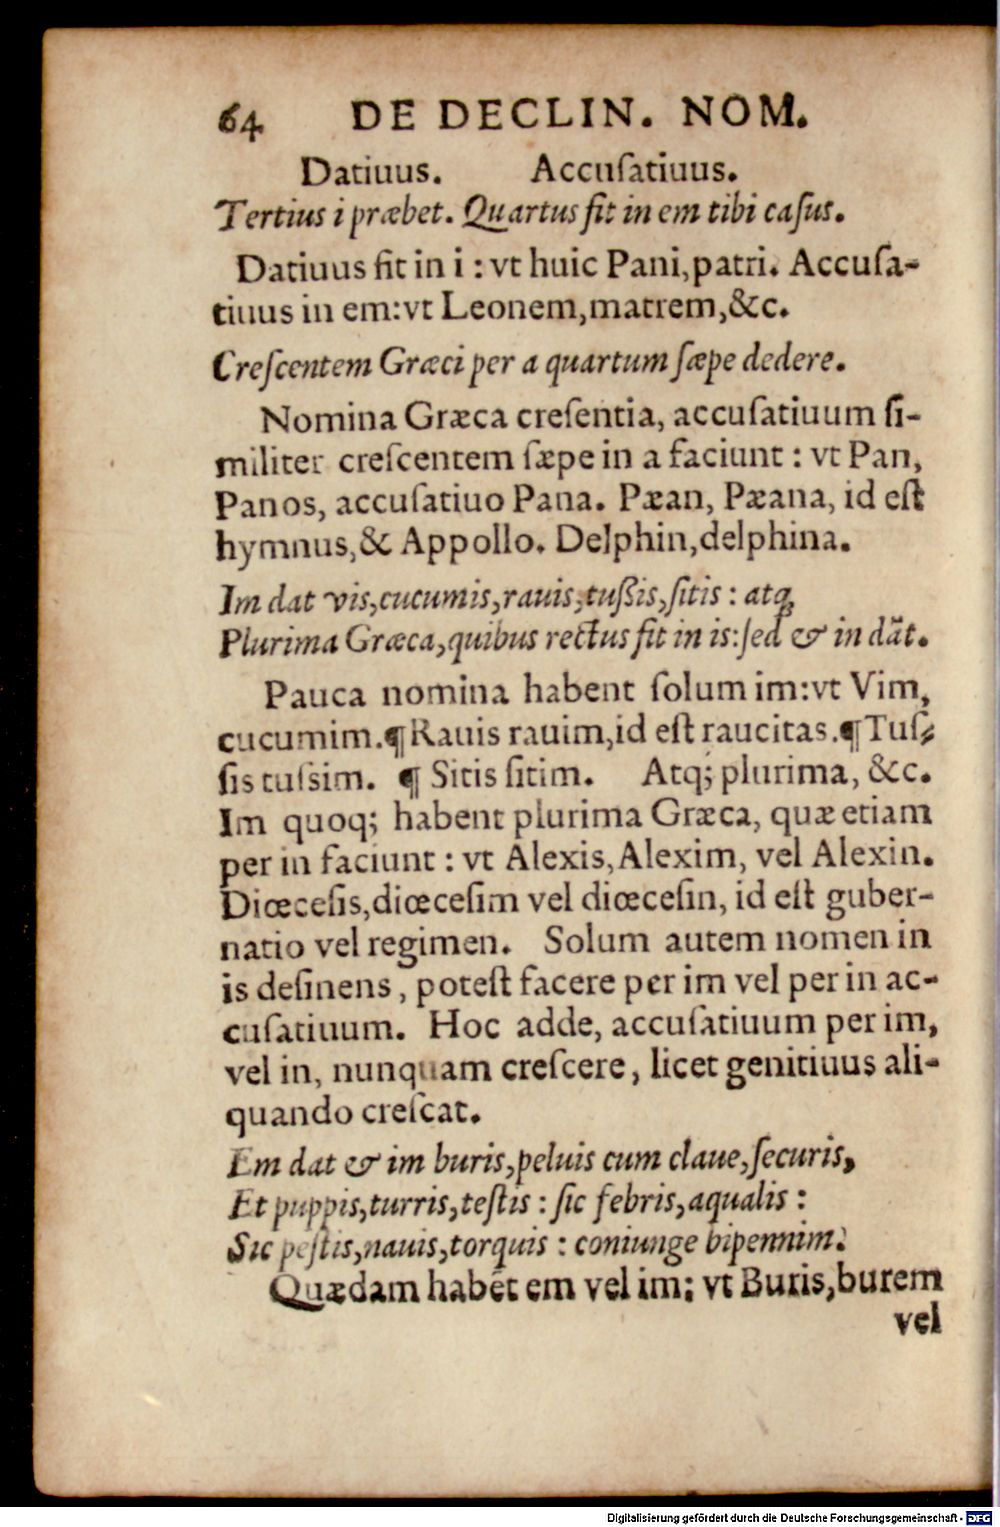 64 DE DECLIN. NOM.
Datiuus. Accuſatiuus.
Tertius i præbet. Quartus fit in em tibi caſus.
Datiuus fit in i : vt huic Pani, patri. Accuſa-
tiuus in em: vt Leonem, matrem, &c.
Creſcentem Græci per a quartum ſæpe dedere.
Nomina Græca creſentia, accuſatiuum ſi-
militer creſcentem ſæpe in a faciunt : vt Pan,
Panos, accuſatiuo Pana. Pæan, Pæana, id eſt
hymnus, & Appollo. Delphin, delphina.
Im dat vis, cucumis, rauis, tußis, ſitis : atq;
Plurima Græca, quibus rectus fit in is: ſed & in dãt.
Pauca nomina habent ſolum im: vt Vim,
cucumim. ¶ Rauis rauim, id eſt raucitas. ¶ Tuſ-
ſis tuſsim. ¶ Sitis ſitim. Atq; plurima, &c.
Im quoq; habent plurima Græca, quæ etiam
per in faciunt : vt Alexis, Alexim, vel Alexin.
Diœceſis, diœceſim vel diœceſin, id eſt guber-
natio vel regimen. Solum autem nomen in
is deſinens, poteſt facere per im vel per in ac-
cuſatiuum. Hoc adde, accuſatiuum per im,
vel in, nunquam creſcere, licet genitiuus ali-
quando creſcat.
Em dat & im buris, peluis cum claue, ſecuris,
Et puppis, turris, teſtis : ſic febris, aqualis :
Sic peſtis, nauis, torquis : coniunge bipennim.
Quædam habẽt em vel im: vt Buris, burem
vel
Digitalisierung gefördert durch die Deutsche Forschungsgemeinschaft - DFG